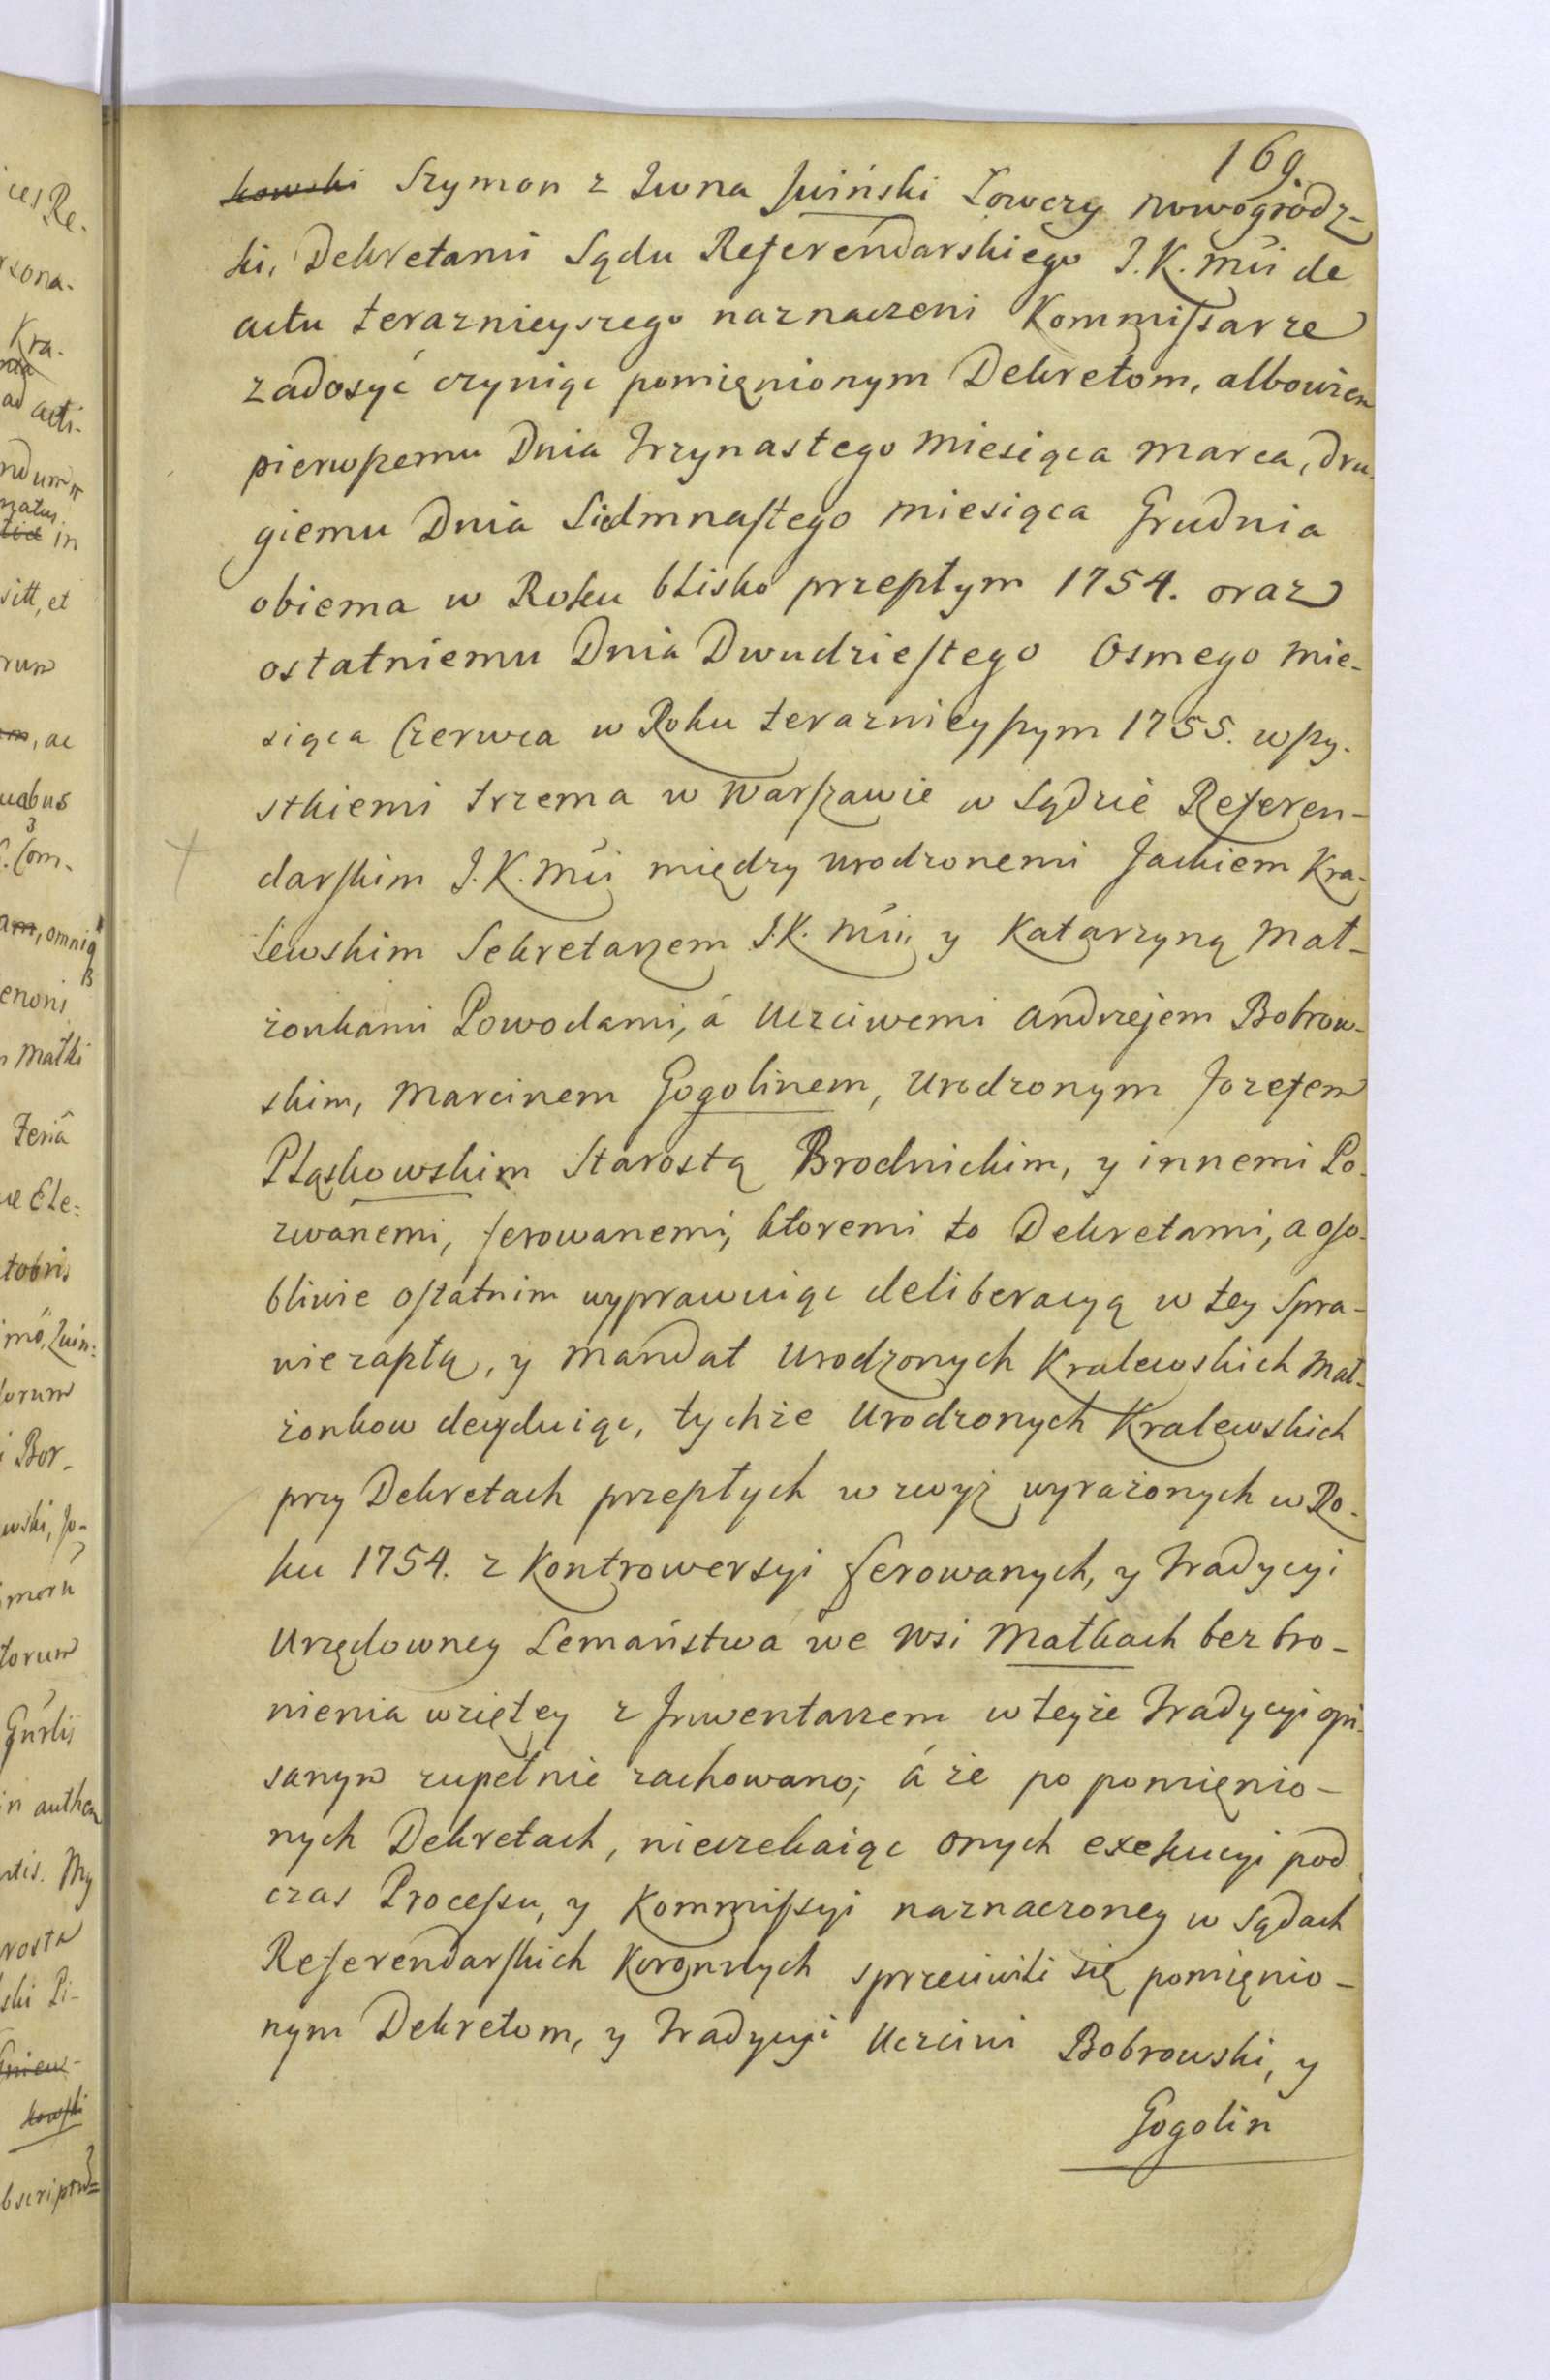 169.
kowski Szymon z Iwna Iwiński Łowczy nowogrodz-
ki, Dekretami Sądu Referendarskiego J.K.Mći de
actu teraznieyszego naznaczeni Kommissarze
zadosyć czyniąc pomięnionym Dekretom, albowiem
pierwszemu Dnia Trzynastego Miesiąca Marca, dru-
giemu Dnia Siedmnastego Miesiąca Grudnia
obiema w Roku blisko przeszłym 1754. oraz
ostatniemu Dnia Dwudziestego Osmego Mie-
siąca Czerwca w Roku teraznieyszym 1755. wszy-
stkiemi trzema w Warszawie w Sądzie Referen-
darskim J.K.Mći między urodzonemi Jackiem Kra-
lewskim Sekretarzem J.K.Mći, y Katarzyną Mał-
żonkami Powodami, á Uczciwemi Andrzejem Bobrow-
skim, Marcinem Gogolinem, Urodzonym Jozefem
Pląskowskim Starostą Brodnickim, y innemi Po-
zwánemi, ferowanemi, ktoremi to Dekretami, a oso-
bliwie ostatnim wyprawuiąc deliberacyą w tey Spra-
wie zaszłą, y Mandat Urodzonych Kralewskich Mał-
żonkow decyduiąc, tychże Urodzonych Kralewskich
przy Dekretach przeszłych w zwyż wyrażonych w Ro-
ku 1754. z Kontrowersyi ferowanych, y Tradycyi
Urzędowney Lemaństwa we Wsi Małkach bez bro-
nienia wziętey z Inwentarzem w teyże Tradycyi opi-
sanym zupełnie zachowano; á że po pomięnio-
nych Dekretach, nieczekaiąc onych exekucyi pod
czas Processu, y Kommissyi naznaczoney w Sądach
Referendarskich Koronnych sprzeciwili się pomięnio-
nym Dekretom, y Tradycyi Uczciwi Bobrowski, y
Gogolin